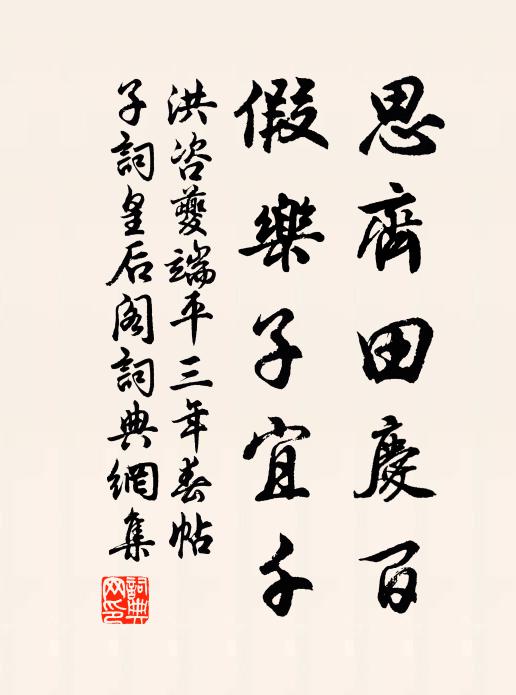 思齊田慶百
假樂子宜千
洪咨夔端平三年春帖
子詞皇后阁詞典網集
詞典網印